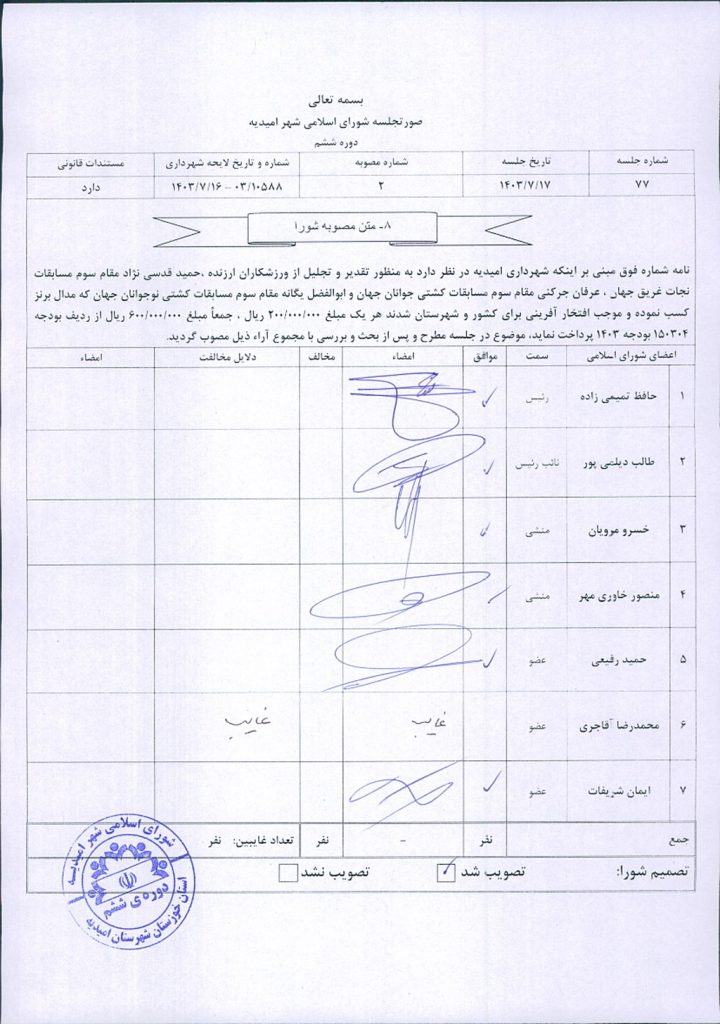 بسمه تعالی
صورتجلسه شورای اسلامی شهر امیدیه
دوره ششم
شماره جلسه تاریخ جلسه شماره مصوبه شماره و تاریخ لایحه شهرداری مستندات قانونی
۷۷ ۱۴۰۳/۷/۱۷ ۲ ۰۳/۱۰۵۸۸ – ۱۴۰۳/۷/۱۶ دارد
۸- متن مصوبه شورا
نامه شماره فوق مبنی بر اینکه شهرداری امیدیه در نظر دارد به منظور تقدیر و تجلیل از ورزشکاران ارزنده ،حمید قدسی نژاد مقام سوم مسابقات
نجات غریق جهان ، عرفان جرکنی مقام سوم مسابقات کشتی جوانان جهان و ابوالفضل یگانه مقام سوم مسابقات کشتی نوجوانان جهان که مدال برنز
کسب نموده و موجب افتخار آفرینی برای کشور و شهرستان شدند هر یک مبلغ ۲۰۰/۰۰۰/۰۰۰ ریال ، جمعاً مبلغ ۶۰۰/۰۰۰/۰۰۰ ریال از ردیف بودجه
۱۵۰۳۰۴ بودجه ۱۴۰۳ پرداخت نماید، موضوع در جلسه مطرح و پس از بحث و بررسی با مجموع آراء ذیل مصوب گردید.
اعضای شورای اسلامی سمت موافق امضاء مخالف دلایل مخالفت امضاء
۱ حافظ تمیمی زاده رئیس ✓
۲ طالب دیلمی پور نائب رئیس ✓
۳ خسرو مرویان منشی ✓
۴ منصور خاوری مهر منشی ✓
۵ حمید رفیعی عضو ✓
۶ محمدرضا آقاجری عضو غایب غایب
۷ ایمان شریفات عضو ✓
جمع نفر - نفر تعداد غایبین: نفر
تصمیم شورا: تصویب شد ✓ تصویب نشد
شورای اسلامی شهر امیدیه
دوره ی ششم
استان خوزستان شهرستان امیدیه